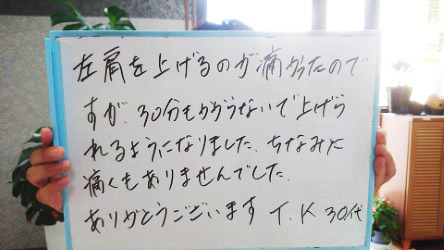 左肩を上げるのが痛かったので
すが、30分もかからないで上げら
れるようになりました。ちなみに
痛くもありませんでした。
ありがとうございます T.K 30代